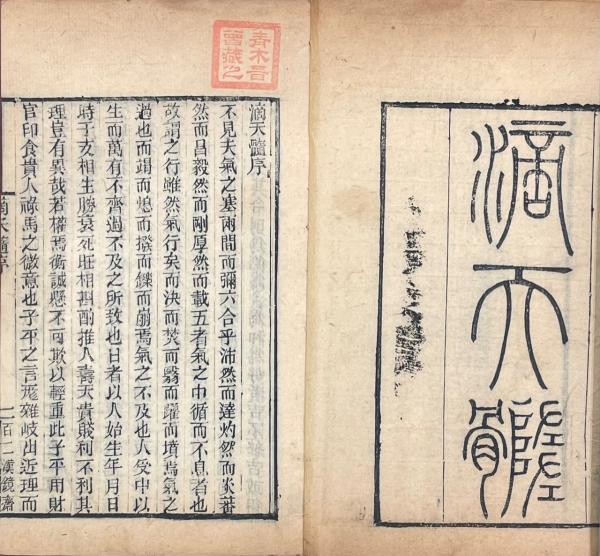 滴天髓
青木
曾藏之
滴天髓序
不見夫氣之塞兩間而彌六合乎沛然而達灼然而炎蕃
然而昌毅然而剛厚然而載五者氣之中循而不息者也
故謂之行雖然氣行矣而決而焚而翳而躍而墳焉氣之
過也而竭而熄而撥而鑠而崩焉氣之不及也人受中以
生而萬有不齊過不及之所致也日者以人始生年月日
時子亥相生勝衰死旺相斟酌推人壽夭貴賤利不利其
理豈有異哉若權焉衡誠懸不可欺以輕重此子平用財
官印食貴人祿馬之微意也子平之言尨雜岐出近理而
滴天髓序 一 百二漢鏡齋